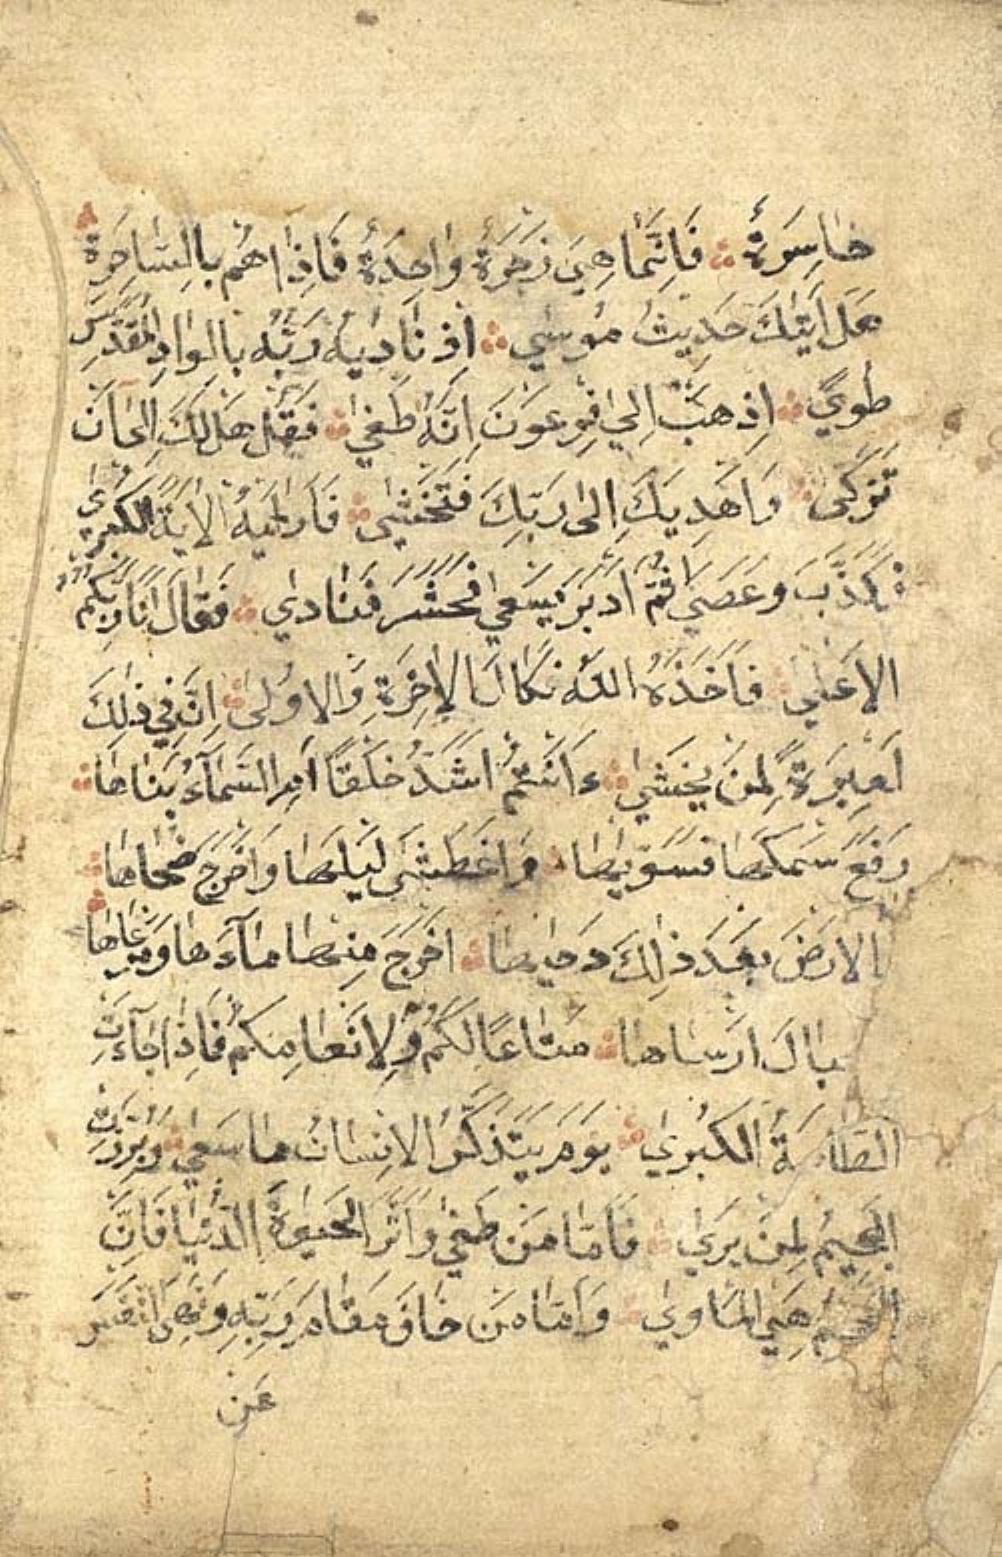 خَاسِرَةٌ فَاِنَّمَا هِىَ زَجْرَةٌ وَاحِدَةٌ فَاِذَا هُمْ بِالسَّاهِرَةْ
هَلْ اَتٰيكَ حَدِيثُ مُوسٰي اِذْ نَادٰيهُ رَبُّهُ بِالْوَادِ الْمُقَدَّسِ
طُوًي اِذْهَبْ اِلٰي فِرْعَوْنَ اِنَّهُ طَغٰي فَقُلْ هَلْ لَكَ اِلٰى اَنْ
تَزَكّٰى وَاَهْدِيَكَ اِلٰى رَبِّكَ فَتَخْشٰي فَاَرٰيهُ الْاٰيَةَ الْكُبْرٰي
فَكَذَّبَ وَعَصٰي ثُمَّ اَدْبَرَ يَسْعٰي فَحَشَرَ فَنَادٰي فَقَالَ اَنَا رَبُّكُمُ
الْاَعْلٰي فَاَخَذَهُ اللّٰهُ نَكَالَ الْاٰخِرَةِ وَالْاُولٰى اِنَّ فِي ذٰلِكَ
لَعِبْرَةً لِمَنْ يَخْشٰي ءَاَنْتُمْ اَشَدُّ خَلْقًا اَمِ السَّمَآءُ بَنَاهَا
رَفَعَ سَمْكَهَا فَسَوّٰيهَا وَاَغْطَشَ لَيْلَهَا وَاَخْرَجَ ضُحَاهَا
الْاَرْضَ بَعْدَ ذٰلِكَ دَحٰيهَا اَخْرَجَ مِنْهَا مَآءَهَا وَمَرْعَاهَا
جِبَالَ اَرْسَاهَا مَتَاعًا لَكُمْ وَلِاَنْعَامِكُمْ فَاِذَا جَآءَتِ
الطَّامَّةُ الْكُبْرٰي يَوْمَ يَتَذَكَّرُ الْاِنْسَانُ مَا سَعٰي وَبُرِّزَتِ
الْجَحِيمُ لِمَنْ يَرٰي فَاَمَّا مَنْ طَغٰي وَاٰثَرَ الْحَيٰوةَ الدُّنْيَا فَاِنَّ
الْجَحِيمَ هِيَ الْمَاْوٰي وَاَمَّا مَنْ خَافَ مَقَامَ رَبِّهِ وَنَهَى النَّفْسَ
عَنِ